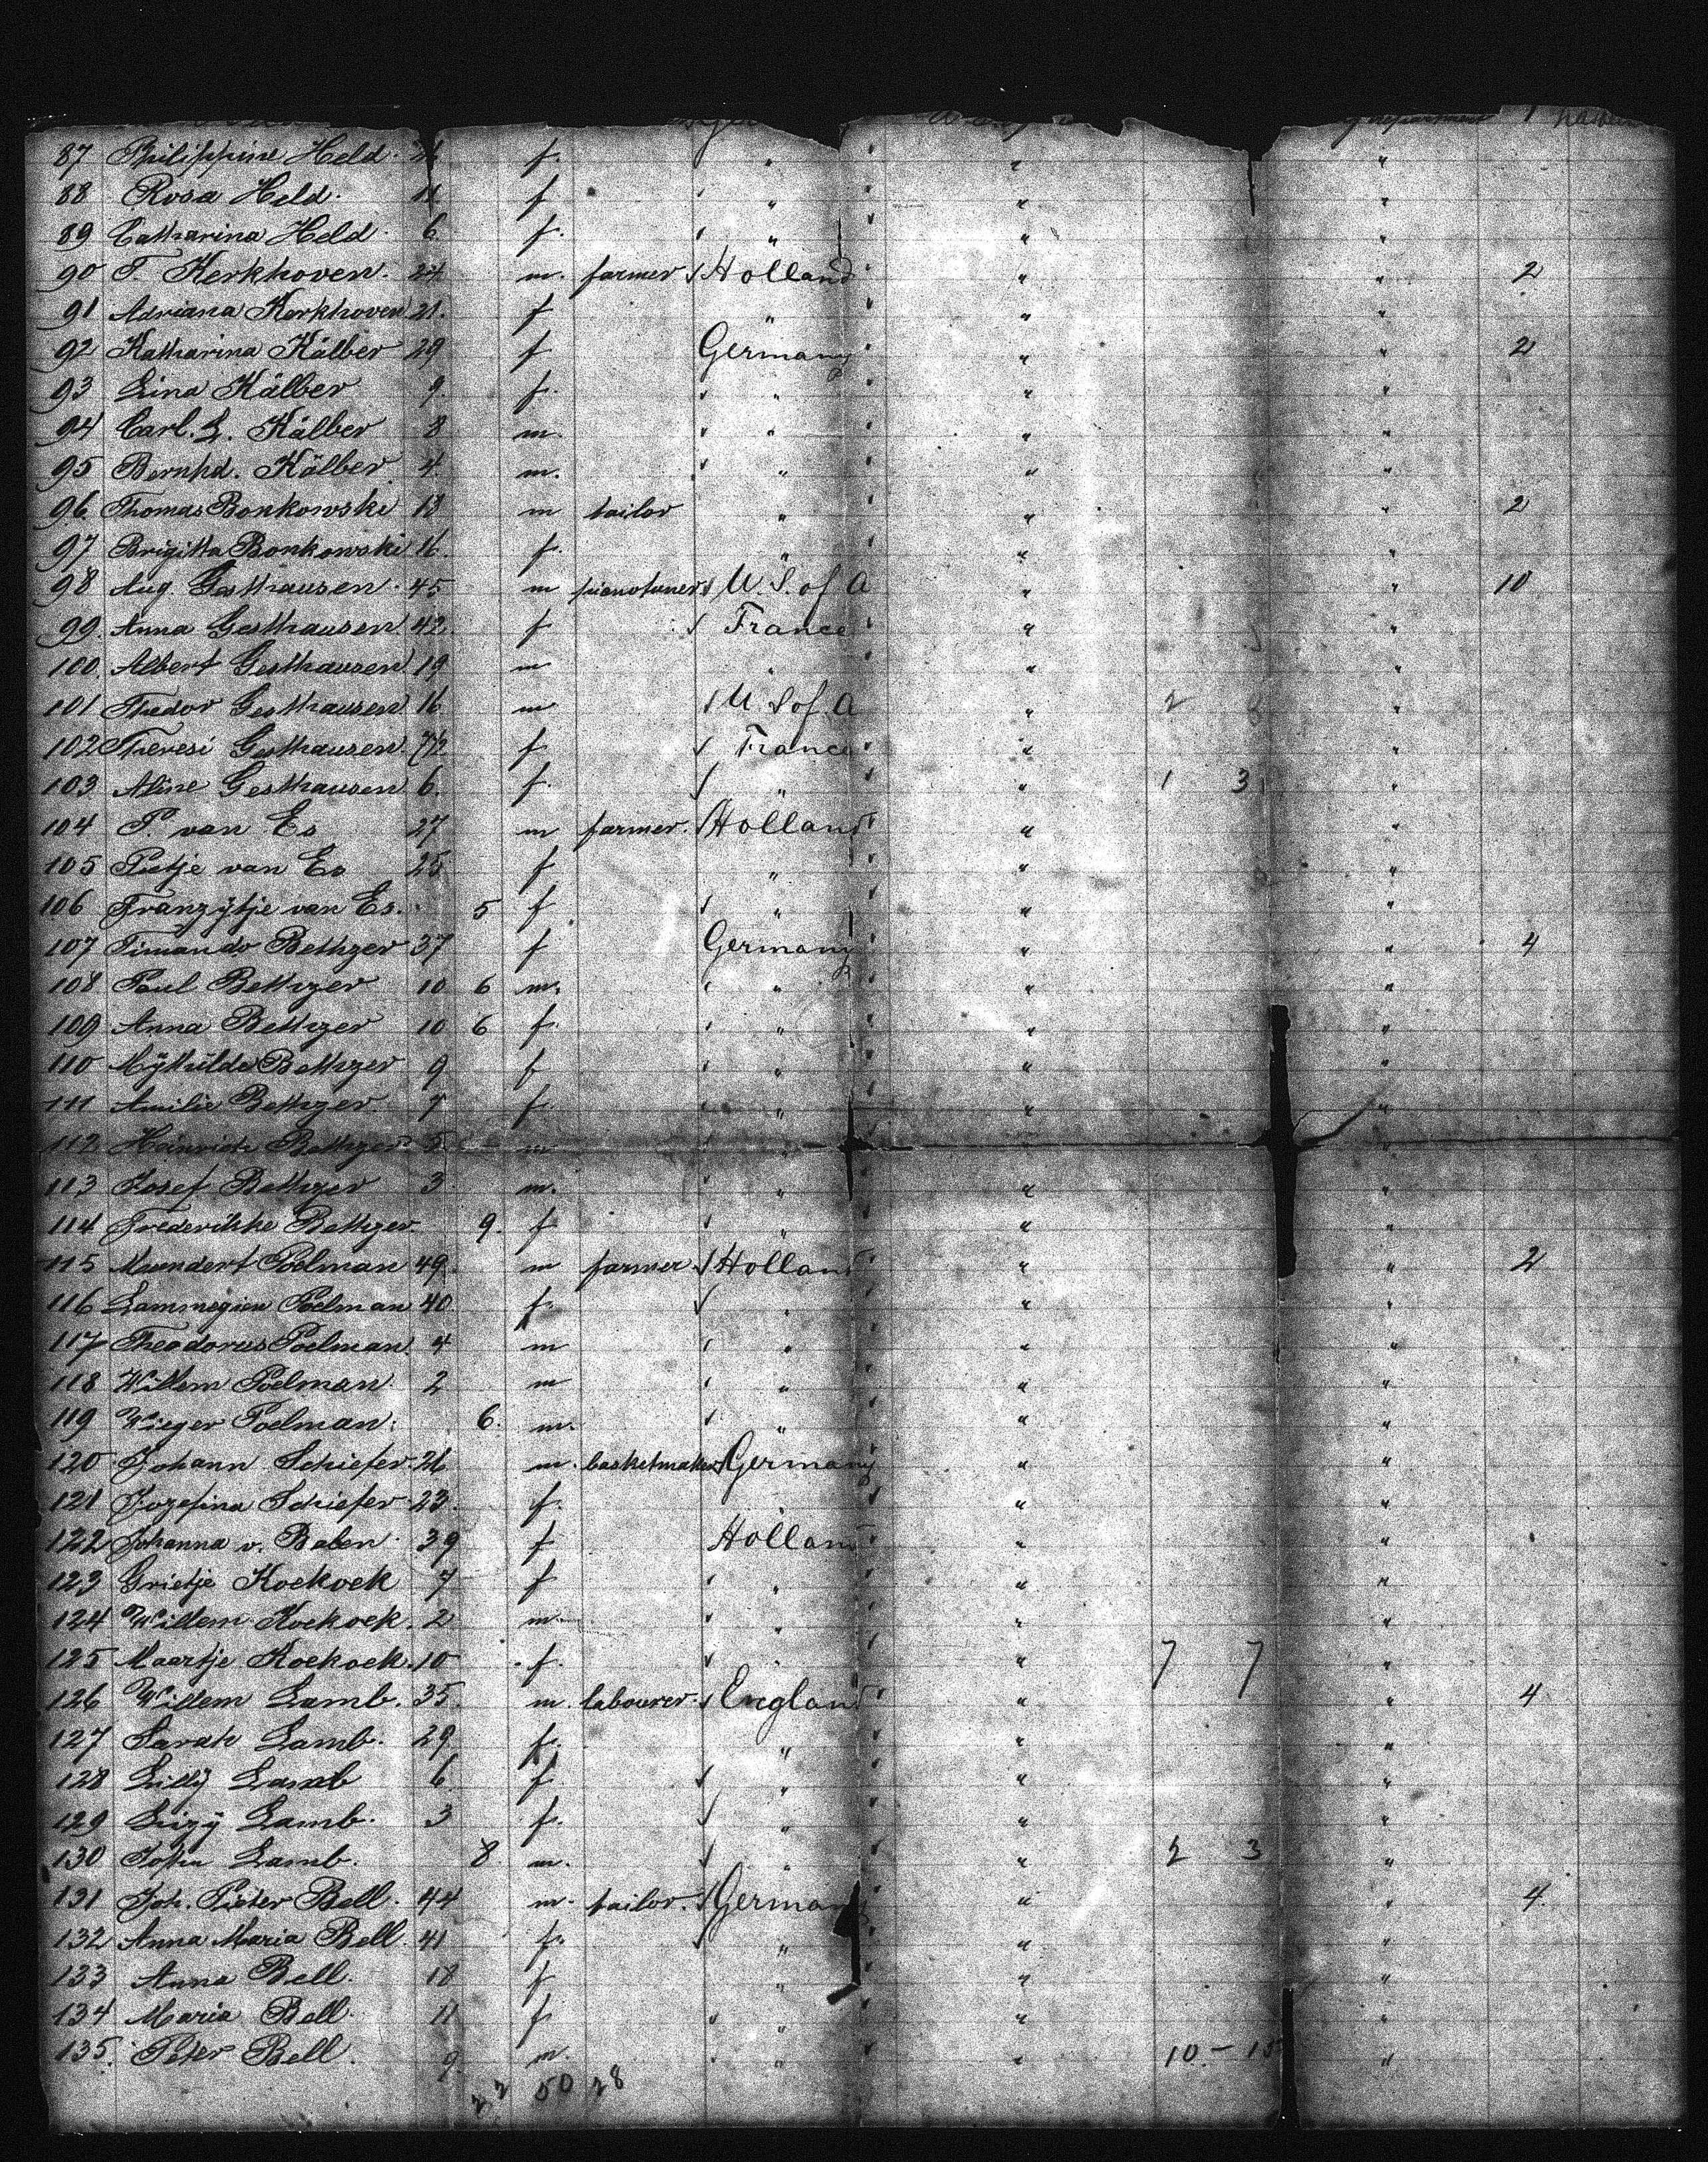 87 Philippine Held. f. " " "
88 Rosa Held. 11 f " " "
89 Catharina Held. 6. f. " " "
90 T. Kerkhoven. 24 m. farmer Holland " " 2
91 Adriana Kerkhoven 21. f " " "
92 Katharina Kälber 29 f Germany " " 2
93 Lina Kälber 9. f. " " "
94 Carl. L. Kälber 8 m. " " "
95 Bernhd. Kälber 4 m. " " "
96 Thomas Bonkowski 18 m tailor " " " 2
97 Brigitta Bonkowski 16. f. " " "
98 Aug. Gesthausen. 45 m pianotuner U. S. of A " " 10
99. Anna Gesthausen. 42. f France " "
100. Albert Gesthausen 19 m " " "
101 Thedor Gesthausen 16 m U. S of. A " 2 "
102 Theresi Gesthausen. 7½ f. France " "
103 Aline Gesthausen 6. f. " " 1 3 "
104 P. van Es 27 m farmer. Holland " "
105 Pietje van Es 25 f " " "
106 Franzÿtje van Es. 5 f " " "
107 Timandr. Bethger 37 f Germany " " 4
108 Paul Bethger 10 6 m. " " "
109 Anna Bethger 10 6 f. " " "
110 Mÿthilde Bethger 9 f " " "
111 Amilie Bethger. 7 f. " "
112 Heinrich Bethger 5. m " "
113 Josef Bethger 3 m. " " "
114 Frederikke Bethger 9. f " "
115 Meendert Poelman 49. m farmer Holland " " 2
116 Lammegien Poelman 40 f. " " "
117 Theodorus Poelman. 4 m " " "
118 Willem Poelman. 2 m " " "
119 Wieger Poelman. 6. m. " " "
120 Johann Schiefer. 26 m. basketmaker Germany " "
121 Jozefina Schiefer 23. f. " " "
122 Johanna v. Balen 39 f Holland " "
123 Grietje Koekoek 7 f " " "
124 Willem Koekoek. 2 m. " " "
125 Maartje Koekoek. 10 f. " " 7 7 "
126 Willem Lamb. 35. m. labourer. England " " 4
127 Sarah Lamb. 29 f. " " "
128 Lilly Lamb 6. f. " " "
129 Lizÿ Lamb. 3 f. " " "
130 John Lamb. 8. m. " " 2 3 "
131 Joh. Pieter Bell. 44 m. tailor. Germany " " 4.
132 Anna Maria Bell. 41 f. " " "
133 Anna Bell. 18 f " " "
134 Maria Bell. 11 f " " "
135. Peter Bell. 9. m. " " 10.- 15 "
22 50 28